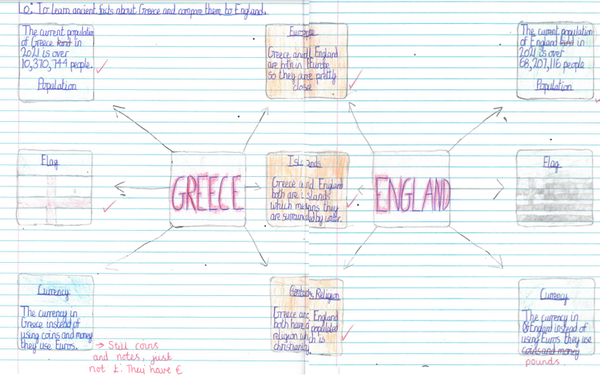 Lo: To learn ancient facts about Greece and compare them to England.
The current population
of Greece in
2021 is over
10,370,744 people.
Population
Europe
Greece and England
are both in Europe
so they are pretty
close
The current population
of England in
2021 is over
68,207,116 people.
Population
Flag
GREECE
Islands
Greece and England
both are islands
which means they
are surrounded by water.
ENGLAND
Flag
Currency
The currency in
Greece instead of
using coins and money
they use Euros.
→ Still coins
and notes, just
not £. They have €
Religion
Greece and England
both have a populated
religion which is
christianity
Currency
The currency in
England instead of
using Euros they use
coins and money
pounds.